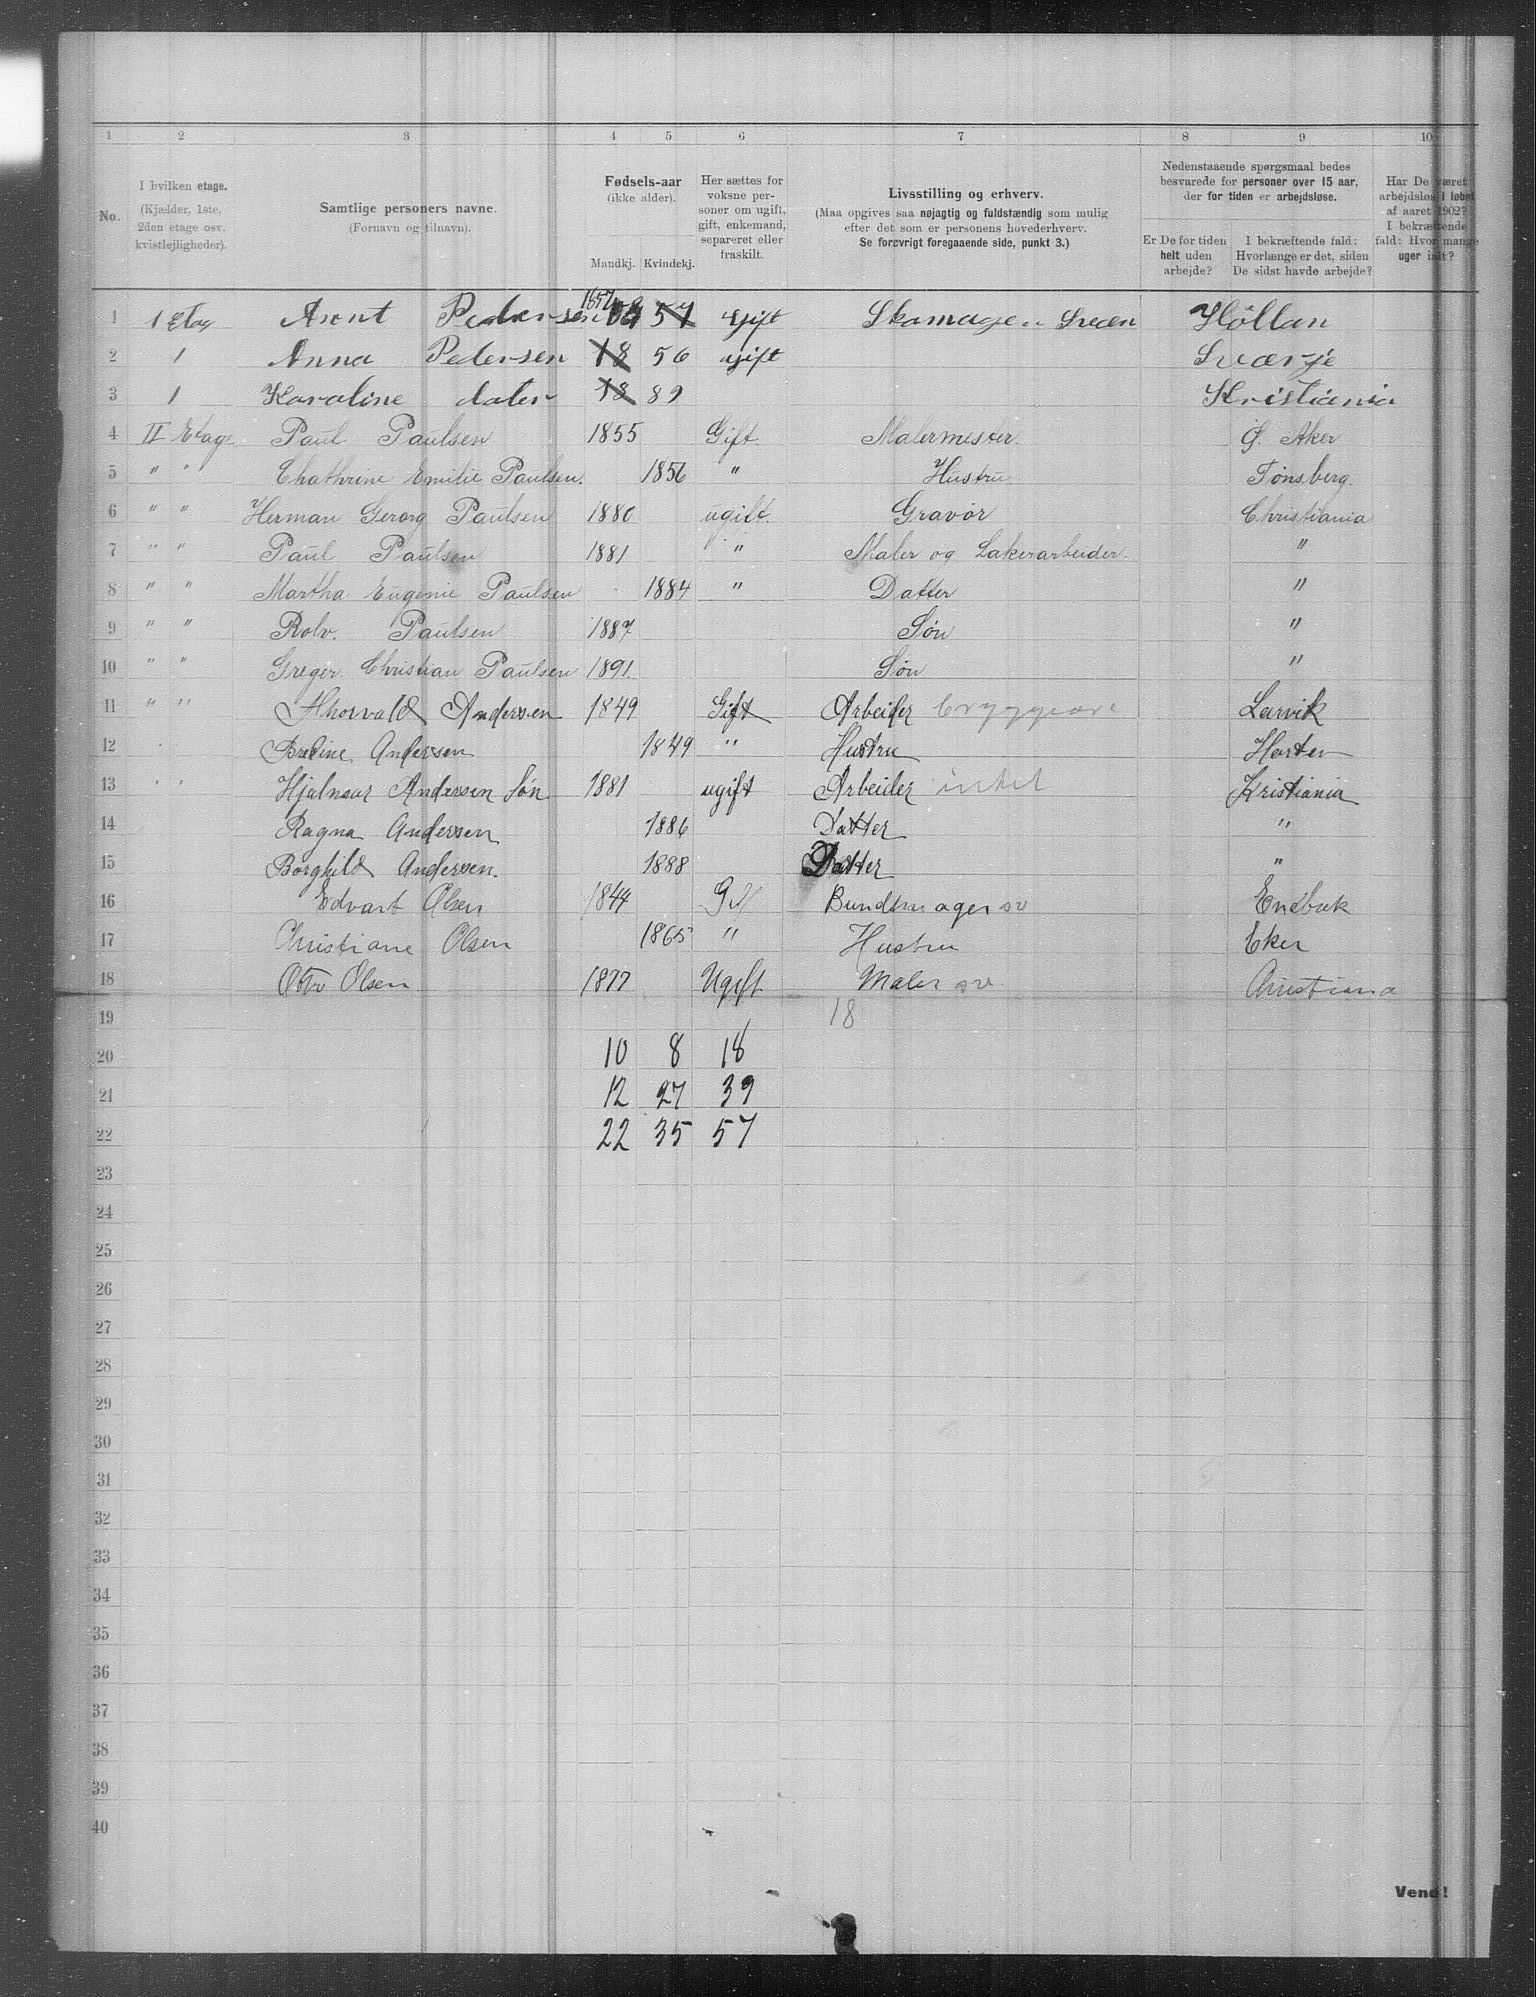 1 2 3 4 5 6 7 8 9 10
No.
I hvilken etage.
(Kjælder, 1ste,
2den etage osv.
kvistlejligheder).
Samtlige personers navne.
(Fornavn og tilnavn).
Fødsels-aar
(ikke alder).
Mandkj. Kvindekj.
Her sættes for
voksne per-
soner om ugift,
gift, enkemand,
separeret eller
fraskilt.
Livsstilling og erhverv.
(Maa opgives saa nøjagtig og fuldstændig som mulig
efter det som er personens hovederhverv.
Se forøvrigt foregaaende side, punkt 3.)
Nedenstaaende spørgsmaal bedes
besvarede for personer over 15 aar,
der for tiden er arbejdsløse.
Er De for tiden
helt uden
arbejde?
I bekræftende fald:
Hvorlænge er det, siden
De sidst havde arbejde?
Har De været
arbejdsløs i løbet
af aaret 1902?
I bekræftende
fald: Hvor mange
uger ialt?
1 1 Etag Arent Pedersen 1857 57 Gift Skomager Sveen Höllan
2 1 Anna Pedersen 18 56 gift Sværje
3 1 Karoline dater 18 89 Kristiania
4 II Etage Paul Paulsen 1855 Gift Malermester Ø. Aker
5 " " Chathrine Emilie Paulsen. 1856 " Hustru Tønsberg.
6 " " Herman Gerorg Paulsen 1880 ugift. Gravør Christiania
7 " " Paul Paulsen 1881 " Maler og Lakerarbeider. "
8 " " Martha Eugenie Paulsen 1884 " Datter "
9 " " Rolv. Paulsen 1887 Søn "
10 " " Greger Christian Paulsen 1891. Søn "
11 " " Thorvald Andersen 1849 Gift Arbeider bryggeare Larvik
12 Bredine Andersen 1849 " Hustru Horten
13 " " Hjalmar Andersen Søn 1881 ugift Arbeider intet Kristiania
14 Ragna Andersen 1886 Datter "
15 Borghild Andersen. 1888 Datter "
16 Edvart Olsen 1844 Gift Bundtmager sv Enebak
17 Christiane Olsen 1865 " Hustru Eker
18 Otto Olsen 1877 Ugift Maler sve. Christiana
19 18
20 10 8 18
21 12 27 39
22 22 35 57
23
24
25
26
27
28
29
30
31
32
33
34
35
36
37
38
39
40
Vend!